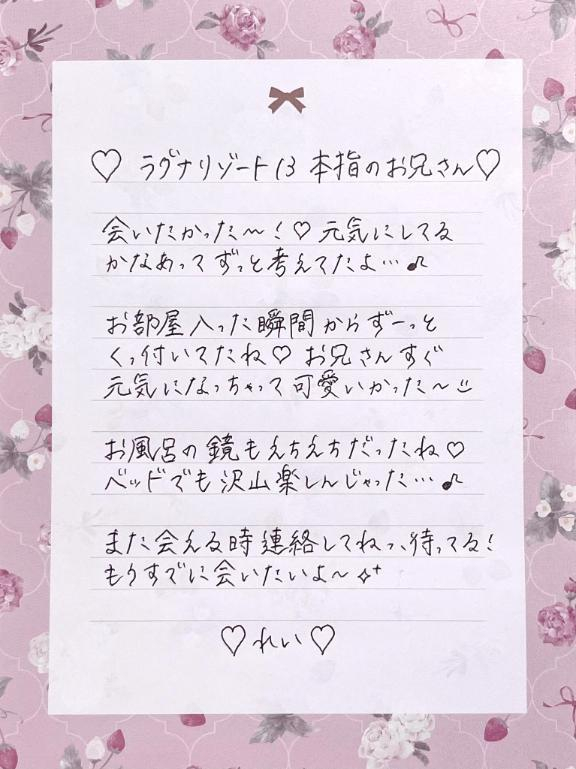 ♡ ラグナリゾート13 本指のお兄さん♡
会いたかった〜!♡ 元気にしてる
かなあってずっと考えてたよ…♪
お部屋入った瞬間からずーっと
くっ付いてたね♡ お兄さんすぐ
元気になっちゃって可愛いかった〜
お風呂の鏡もえちえちだったね♡
ベッドでも沢山楽しんじゃった…♪
また会える時連絡してねっ、待ってる!
もうすでに会いたいよ〜✧⁺
♡れい♡